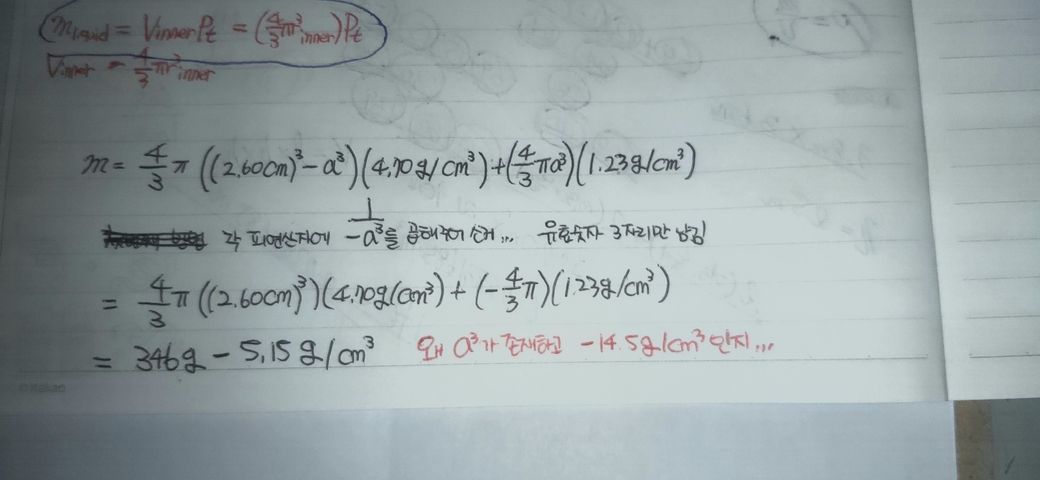 m_liquid = V_inner ρ_t = (4/3 πr³_inner) ρ_t
V_inner = 4/3 πr³_inner
m = 4/3 π ((2.60cm)³ - a³)(4.70g/cm³) + (4/3 πa³)(1.23g/cm³)
각 피연산자에 1/-a³을 곱해주어 소거... 유효숫자 3자리만 남김
= 4/3 π ((2.60cm)³)(4.70g/cm³) + (-4/3 π)(1.23g/cm³)
= 346g - 5.15g/cm³ 왜 a³가 존재하고 -14.5g/cm³ 인지...